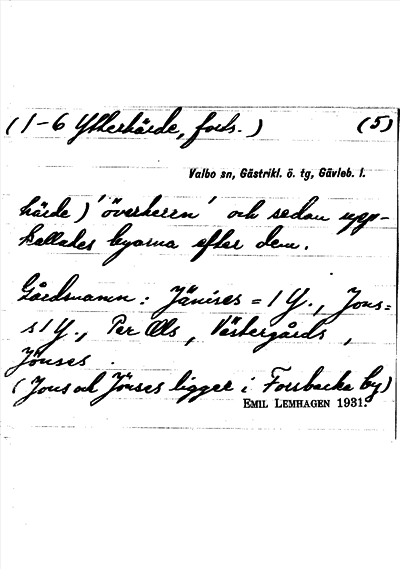 (1-6 Ytterhärde, forts.) (5)
Valbo sn, Gästrikl. ö. tg, Gävleb. l.
härde) 'överherren' och sedan upp-
kallades byarna efter dem.
Gårdsnamn: Jänises = 1 Y., Jons=
s 1 Y., Per Ols, Västergårds,
Jönses.
(Jons och Jönses ligger i Forsbacka by)
EMIL LEMHAGEN 1931.